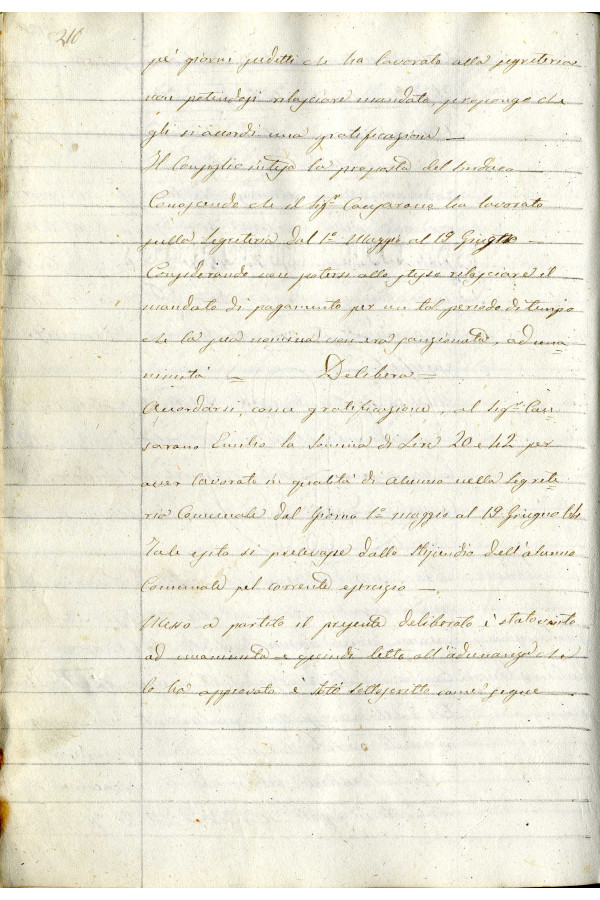 216
pe' giorni sudetti che ha lavorato alla segreteria
non potendosi rilasciare mandato, propongo che
gli si accordi una gratificazione —
Il Consiglio intesa la proposta del Sindaco —
Conoscendo che il Sigr Cansarano ha lavorato
nella Segreteria dal 1° Maggio al 19 Giugno —
Considerando non potersi allo stesso rilasciare il
mandato di pagamento per un tal periodo di tempo
che la sua nomina non era sanzionata, ad una-
nimità — Delibera —
Accordarsi, come gratificazione, al Sigr Can-
sarano Emilio la somma di Lire 20 e 42 per
aver lavorato in qualità di alunno nella Segrete-
ria Comunale dal giorno 1° Maggio al 19 Giugno
Tale esito si prelevasse dallo stipendio dell'alunno
Comunale pel corrente esercizio —
Messo a partito il presente deliberato è stato vinto
ad unanimità e quindi letto all'adunanza che
lo ha approvato è stato sottoscritto come segue